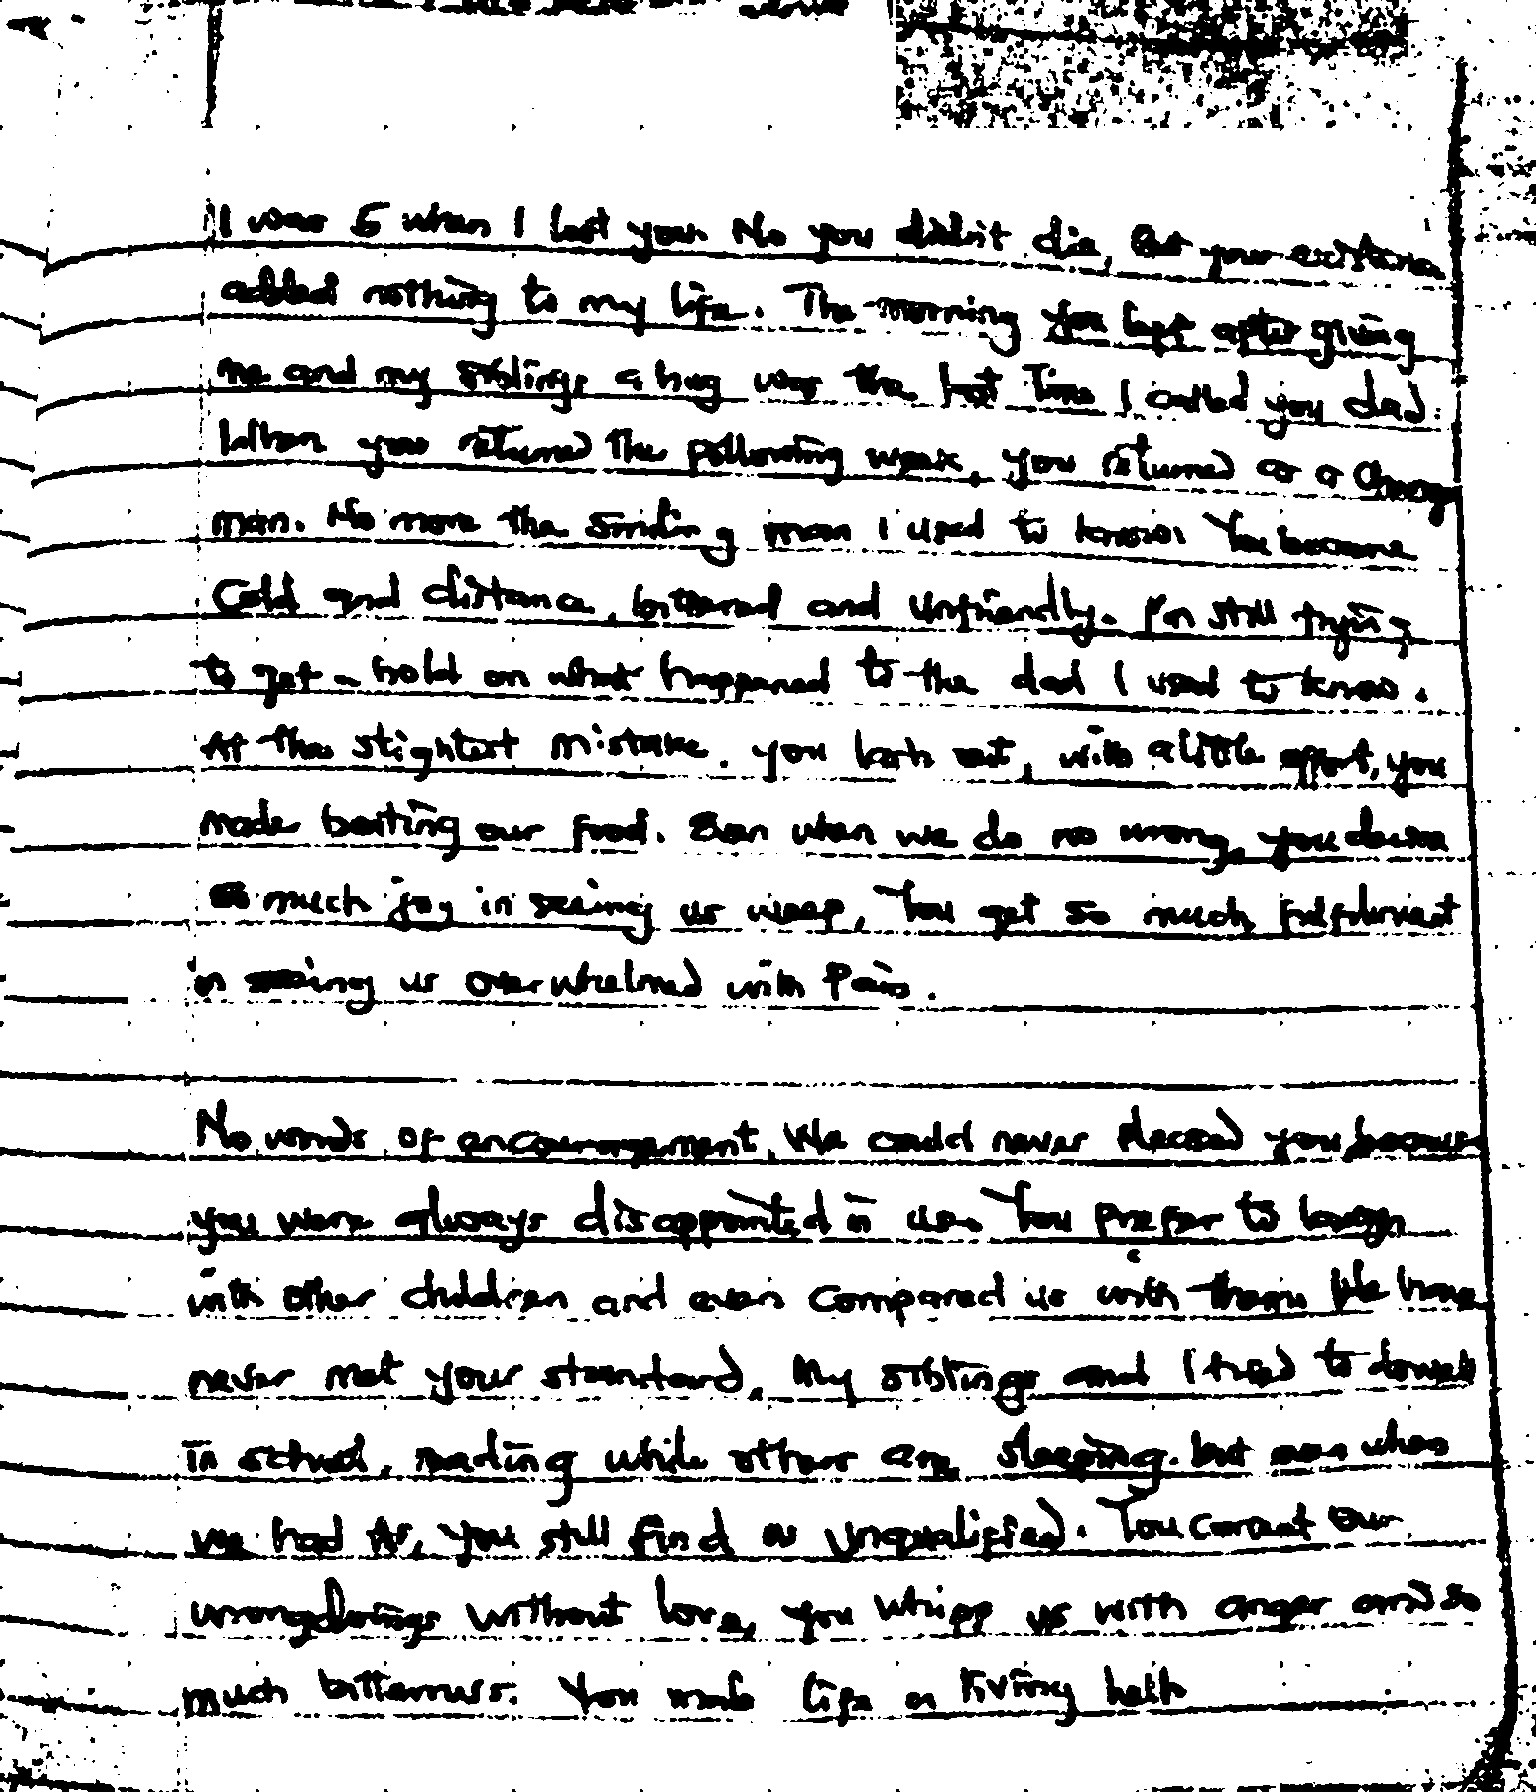 I was 5 when I lost you. No you didn't die, But your existence
added nothing to my life. The morning you left after giving
me and my siblings a hug was the last Time I called you dad.
When you returned the following week, you returned as a Change
man. No more the smiling man I used to know. You became
Cold and distance, bittered and unfriendly. I'm still trying
to get a hold on what happened to the dad I used to know.
At the slightest mistake. you lash out, with a little effort, you
made beating our food. Even when we do no wrong, you derive
so much joy in seeing us weep, You get so much fulfilment
in seeing us overwhelmed with Pain.
No words of encouragement. We could never pleased you because
you were always disappointed in us. You prefer to laugh
with other children and even Compared us with them. We have
never met your standard. My siblings and I tried to do well
in school, reading while others are sleeping. but even when
we had As, you still find us unqualified. You correct our
wrongdoings without love, you whipp us with anger and so
much bitterness. You made life a living hell